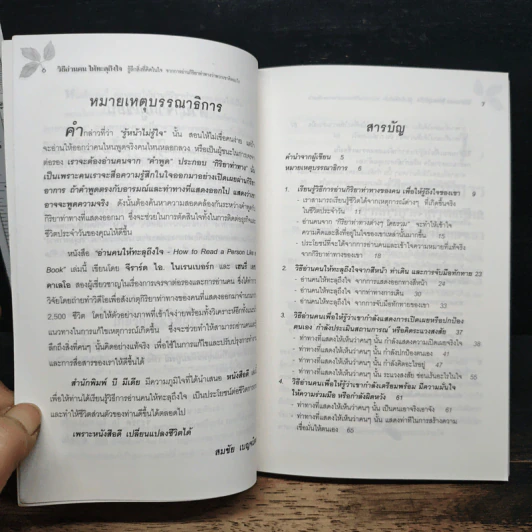 6 วิธีอ่านคน ให้ทะลุถึงใจ
หมายเหตุบรรณาธิการ
คำกล่าวที่ว่า "รู้หน้าไม่รู้ใจ" นั้น สอนให้ไม่เชื่อคนง่าย
จะอ่านให้ออกว่าคนไหนพูดจริงคนไหนหลอกลวง หรือเป็นผู้ชนะในการ
ต่อรอง เราจะต้องอ่านคนจาก "คำพูด" ประกอบ "กิริยาท่าทาง" นั้น
เป็นเพราะคนเราจะสื่อความรู้สึกในใจออกมาอย่างเปิดเผยผ่านกิริยา
อาการ ถ้าคำพูดตรงกับอารมณ์และท่าทางที่แสดงออกไป แสดงว่า
อาจจะพูดความจริง ดังนั้นต้องค้นหาความสอดคล้องกันระหว่างคำพูด
กิริยาท่าทางที่แสดงออกมา ซึ่งจะช่วยในการตัดสินใจทั้งในการติดต่อธุรกิจและ
ชีวิตประจำวันของคุณให้ดีขึ้น
หนังสือ "อ่านคนให้ทะลุถึงใจ - How to Read a Person Like
Book" เล่มนี้ เขียนโดย จีราร์ด ไอ. ไนเรนเบอร์ก และ เฮนรี่
คาเลโอ สองผู้เชี่ยวชาญในเรื่องการเจรจาต่อรองและการอ่านคน ซึ่งได้
วิจัยโดยถ่ายทำวิดีโอเพื่อสังเกตกิริยาท่าทางของคนที่แสดงออกมาจำนวน
2,500 ชีวิต โดยให้ตัวอย่างภาพที่เข้าใจง่ายพร้อมทั้งวิเคราะห์อีกทั้ง
แนวทางในการแก้ไขเหตุการณ์เกิดขึ้น ซึ่งจะช่วยทำให้สามารถอ่านคน
ลึกถึงสิ่งที่คนๆ นั้นคิดอย่างแท้จริง เพื่อใช้ในการแก้ไขและปรับปรุงท่าทาง
และการสื่อสารของเราให้ดีขึ้นได้
สำนักพิมพ์ บี มีเดีย มีความภูมิใจที่ได้นำเสนอ หนังสือดี
เพื่อให้ท่านได้เรียนรู้วิธีการอ่านท่าทางของคนให้ทะลุถึงใจ เป็นประโยชน์ต่อชีวิต
และทำให้ชีวิตส่วนตัวของท่านดีขึ้นได้ตลอดไป
เพราะหนังสือดี เปลี่ยนแปลงชีวิตได้
สมชัย
7
สารบัญ
คำนำจากผู้เขียน 5
หมายเหตุบรรณาธิการ 6
1. เรียนรู้วิธีการอ่านกิริยาท่าทางของคน เพื่อให้รู้ถึงใจของเขา 9
- เราสามารถเรียนรู้ชีวิตได้จากเหตุการณ์ต่างๆ ที่เกิดขึ้นจริง
ในชีวิตประจำวัน 11
- อ่านคนจาก "กิริยาท่าทางต่างๆ โดยรวม" จะทำให้เข้าใจ
ความคิดและสิ่งที่อยู่ในใจของเขาเหล่านั้นมากขึ้น 15
- ประโยชน์ที่จะได้จากการอ่านคนและเข้าใจความหมายที่แท้จริง
จากกิริยาท่าทาง 19
2. วิธีอ่านคนให้ทะลุถึงใจจากสีหน้า ท่าเดิน และการจับมือทักทาย 23
- อ่านคนให้ทะลุถึงใจ จากการแสดงออกทางสีหน้า 24
- อ่านคนให้ทะลุถึงใจ จากท่าทางการเดิน 30
- อ่านคนให้ทะลุถึงใจ จากการจับมือทักทายของเขา 31
3. วิธีอ่านคนเพื่อให้รู้ว่าเขากำลังแสดงการเปิดเผยหรือปกป้อง
ตนเอง กำลังประเมินสถานการณ์ หรือคิดระแวงสงสัย 37
- ท่าทางที่แสดงให้เห็นว่าคนๆ นั้น กำลังแสดงความเปิดเผยจริงใจ
- ท่าทางที่แสดงให้เห็นว่าคนๆ นั้น กำลังปกป้องตนเอง 41
- ท่าทางที่แสดงให้เห็นว่าคนๆ นั้น กำลังคิดอะไรอยู่ 47
- ท่าทางที่แสดงให้เห็นว่าคนๆ นั้น ระแวงสงสัย ซ่อนเร้นอะไรในใจ
4. วิธีอ่านคนเพื่อให้รู้ว่าเขากำลังเตรียมพร้อม มีความมั่นใจ
ให้ความร่วมมือ หรือกำลังผิดหวัง 61
- ท่าทางที่แสดงให้เห็นว่าคนๆ นั้น เป็นคนเอาจริงเอาจัง 61
- ท่าทางที่แสดงให้เห็นว่าคนๆ นั้น แสดงท่าทีในการสร้างความ
เชื่อมั่นให้ตนเอง 65